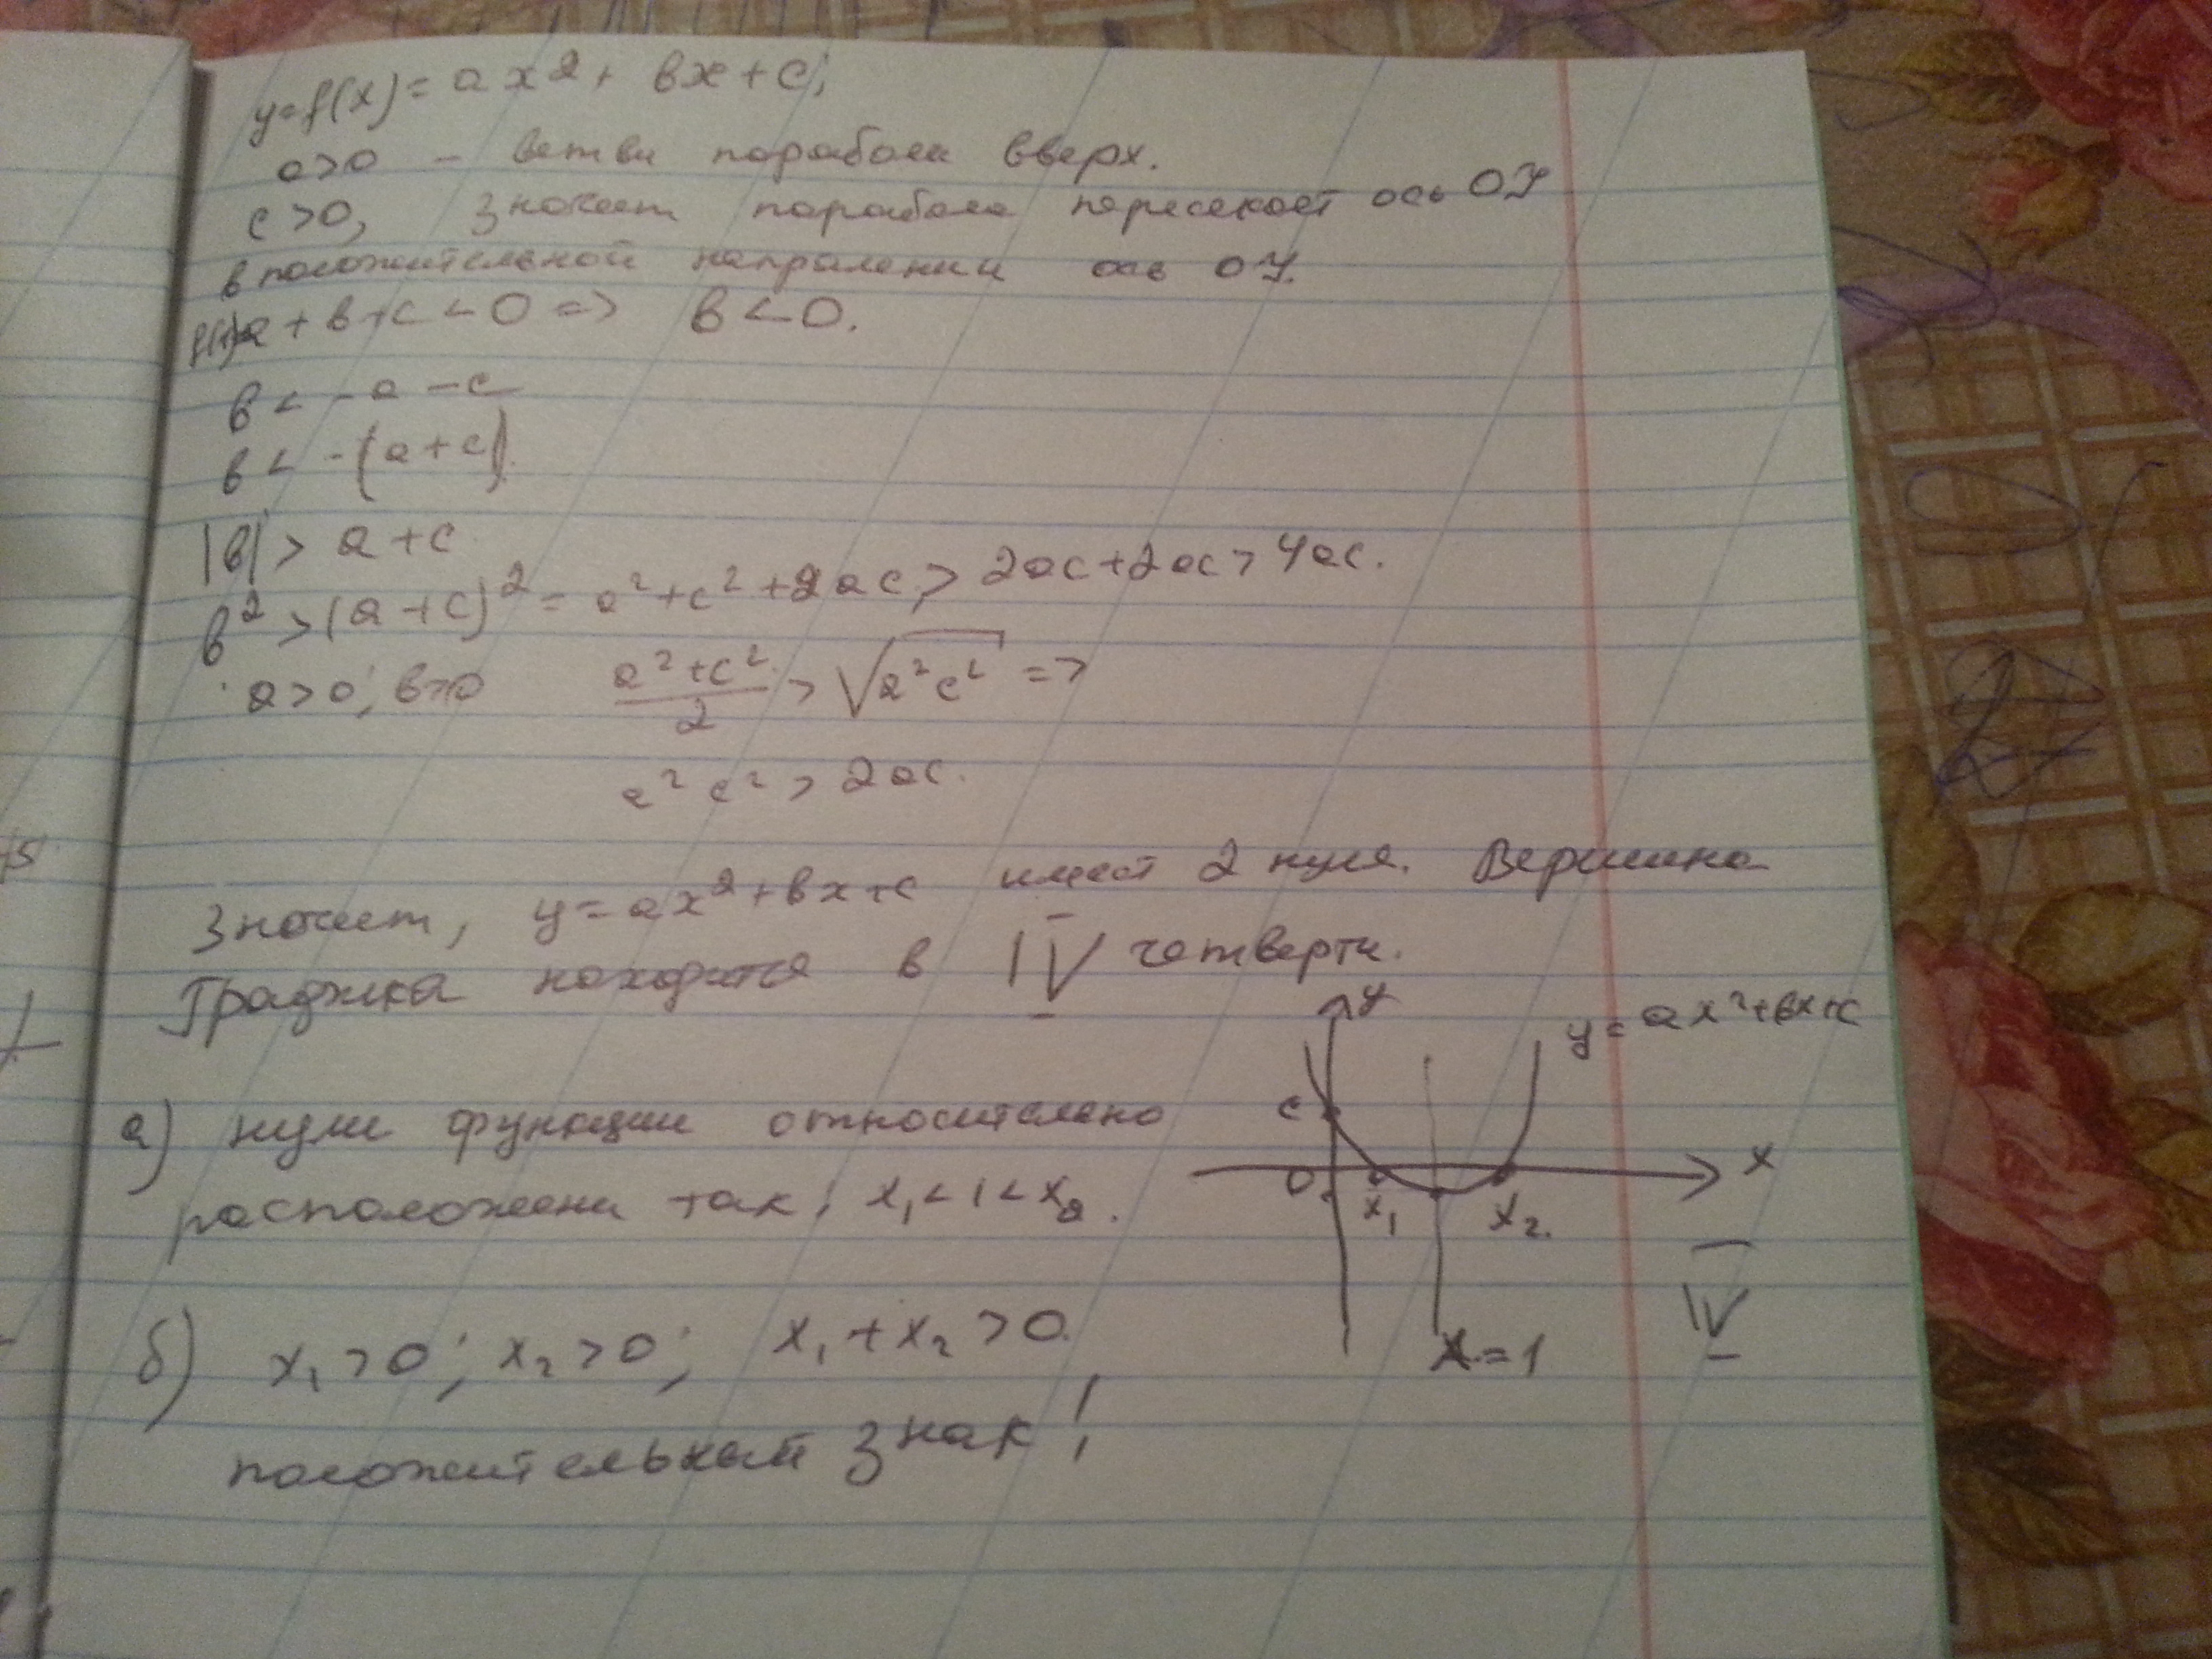 y=f(x)=ax²+вx+c;
a>0 - ветви параболы вверх.
c>0, значит парабола пересекает ось OY
в положительной напралении ось OY.
f(1)=a+в+c<0 => в<0.
в < -a-c
в < -(a+c).
|в| > a+c
в²>(a+c)²=a²+c²+2ac > 2ac+2ac > 4ac.
a>0; в>0 (a²+c²)/2 > √(a²c²) =>
a² c² > 2ac.
Значит, y=ax²+вx+c имеет 2 нуля. Вершина
Графика находится в IV четверти.
y=ax²+вx+c
y
c
0
x₁
x₂
x
x=1
IV
а) нули функции относительно
расположены так: x₁<1<x₂.
б) x₁>0; x₂>0; x₁+x₂>0.
положительный знак!